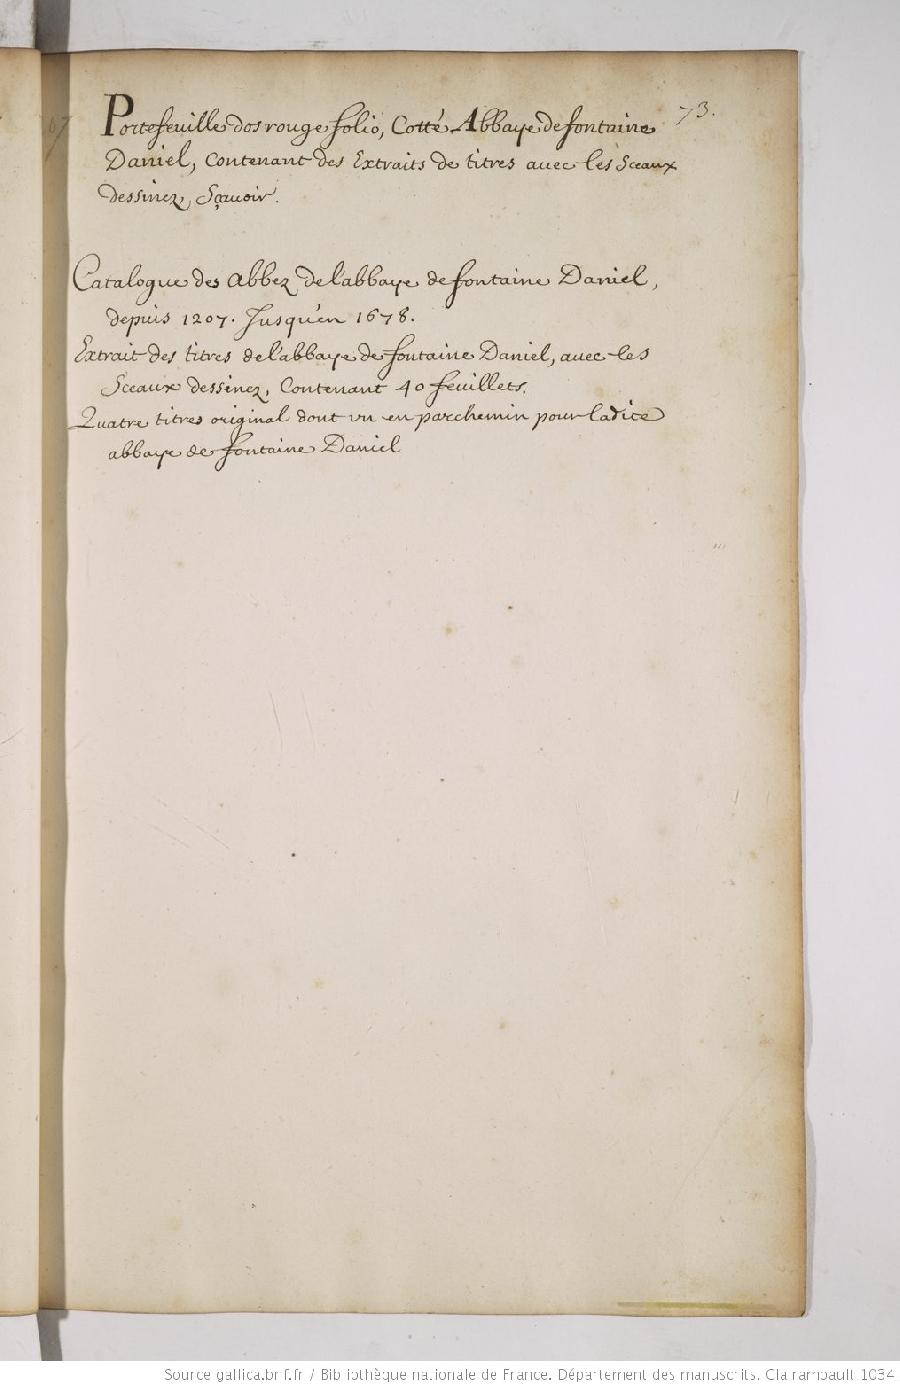 73.
Portefeuille dos rouge folio, Cotté Abbaye de fontaine
Daniel, Contenant des Extraits de titres avec les Sceaux
dessinez, Sçavoir.
Catalogue des Abbez de l'abbaye de fontaine Daniel,
depuis 1207. Jusqu'en 1678.
Extrait des titres de l'abbaye de fontaine Daniel, avec les
Sceaux dessinez, Contenant 40 feuillets.
Quatre titres original dont un en parchemin pour ladite
abbaye de fontaine Daniel
Source gallica.bnf.fr / Bibliothèque nationale de France. Département des manuscrits. Clairambault 1034